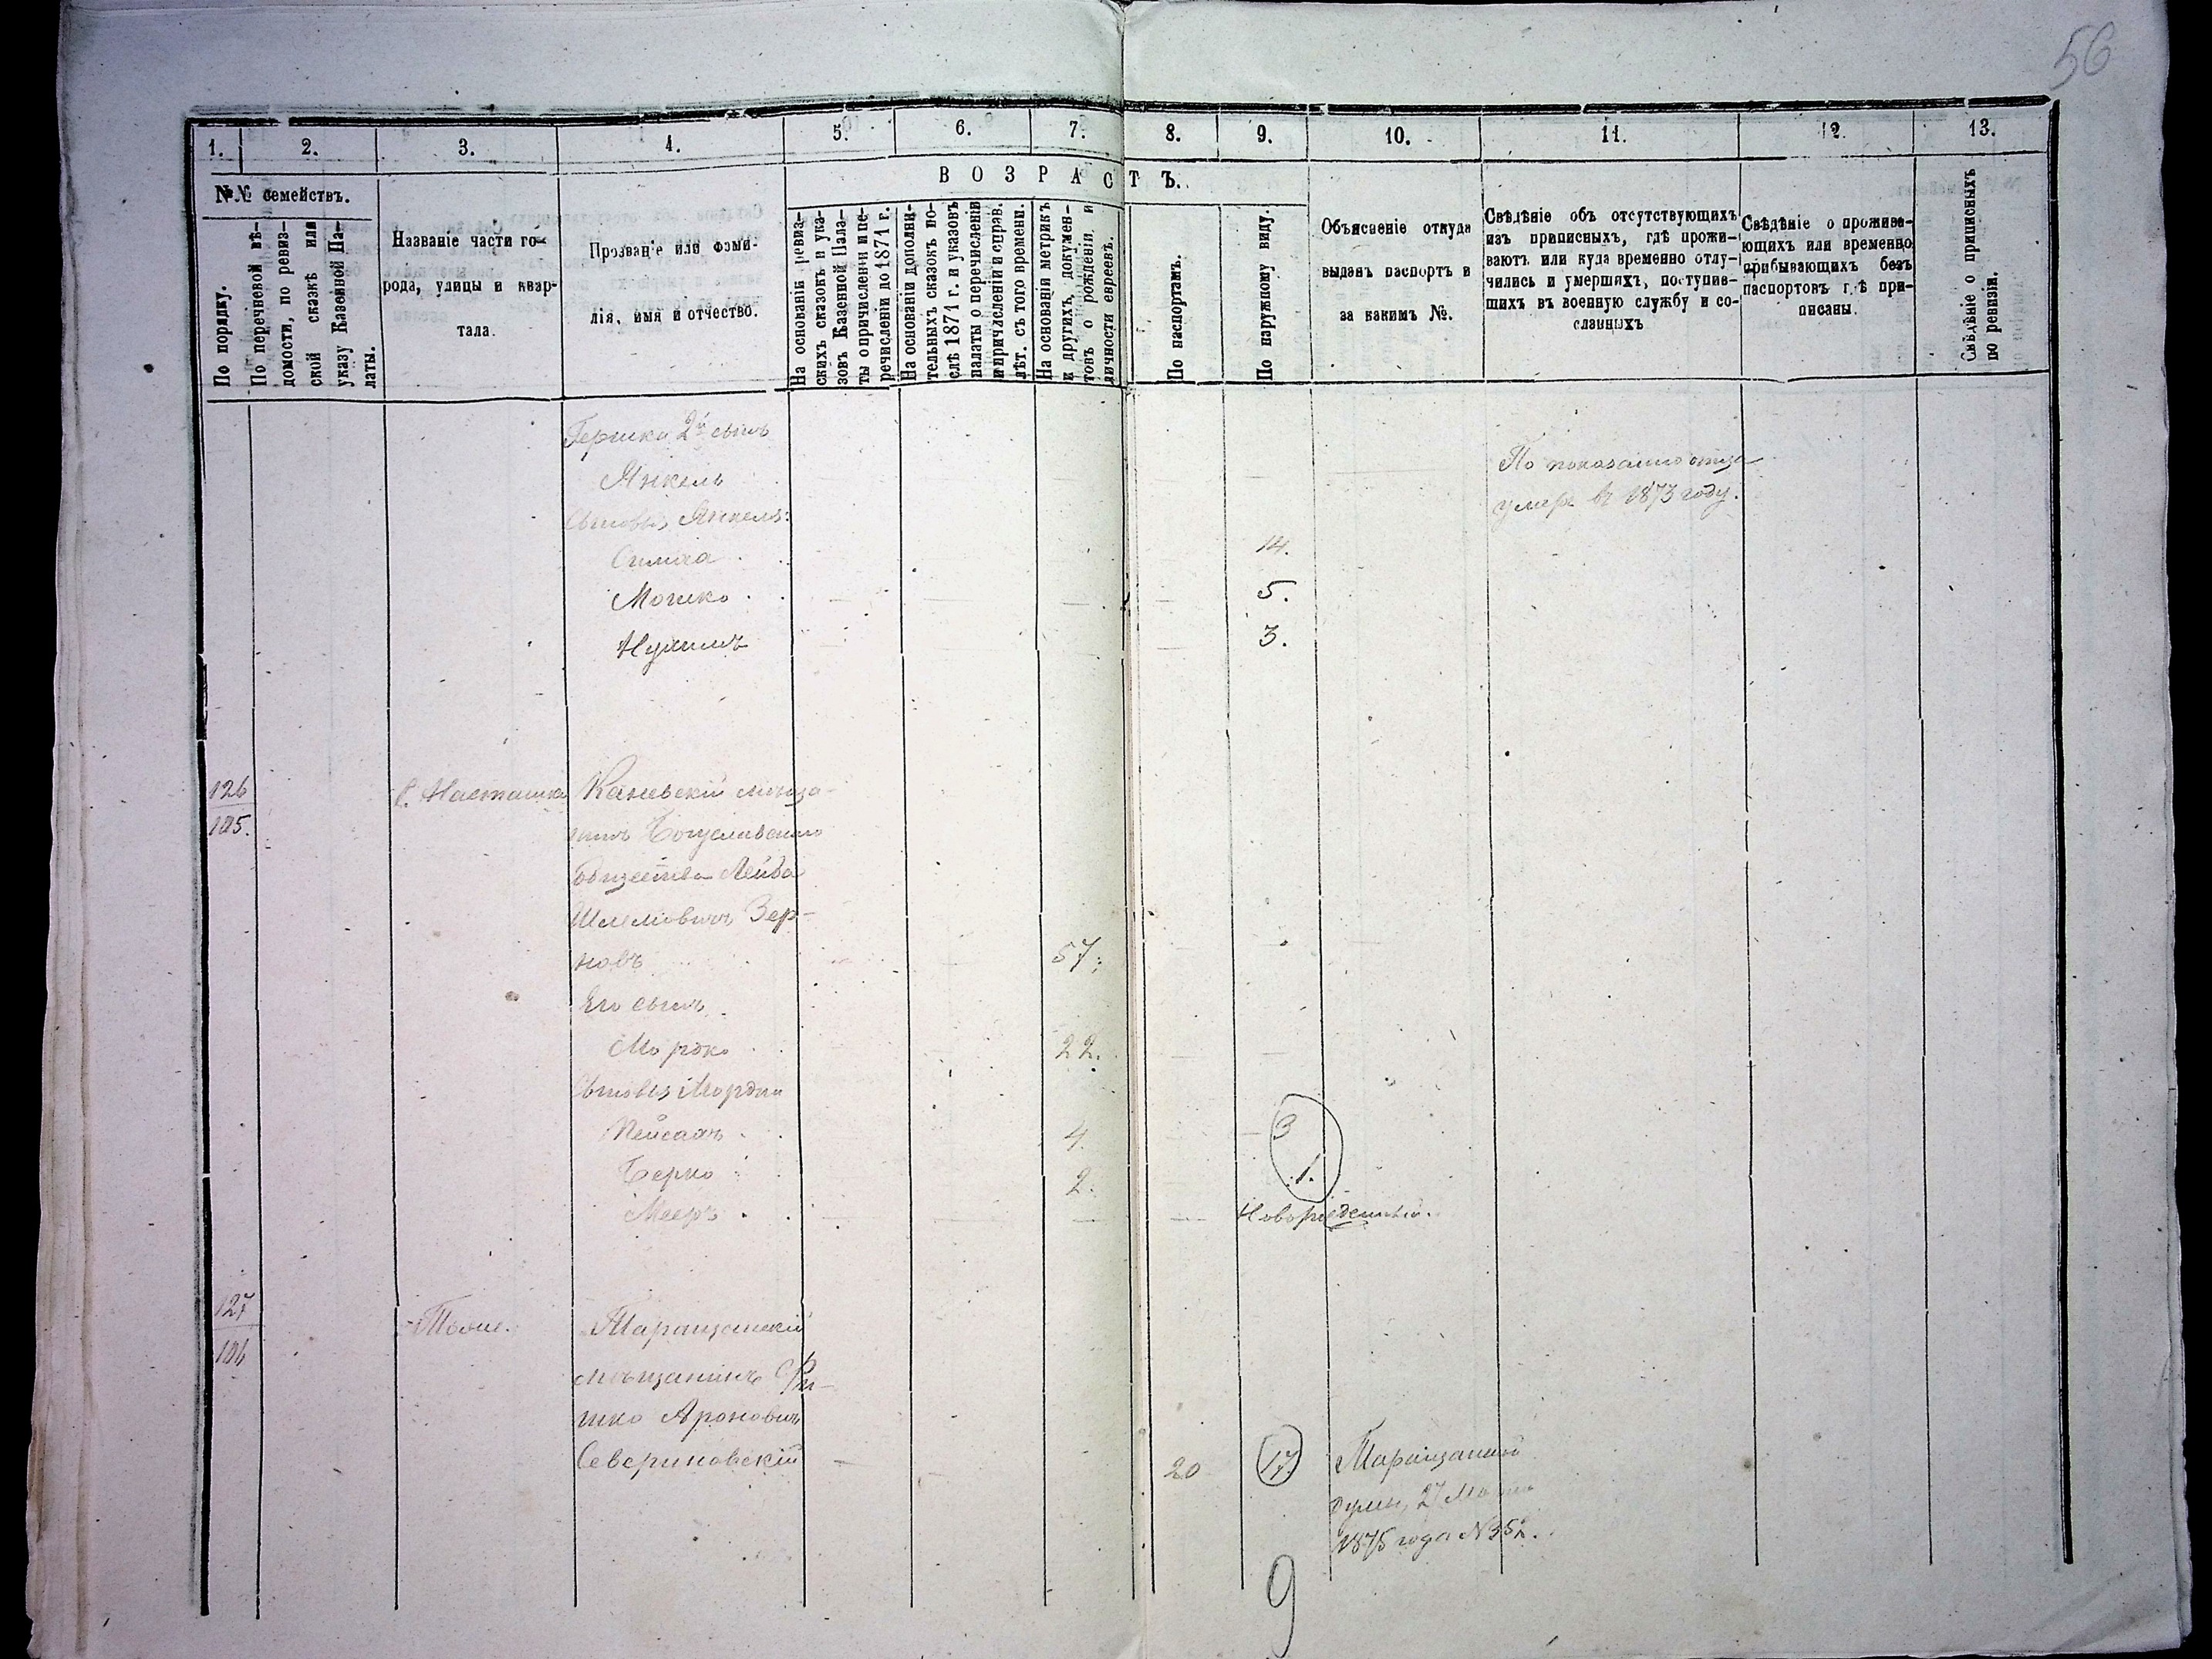 56
1. 2. 3. 4. 5. 6. 7. 8. 9. 10. 11. 12. 13.
№№ семействъ.
По порядку.
По перечневой вѣ-
домости, по ревиз-
ской сказкѣ или
указу Казенной Па-
латы.
Названіе части го-
рода, улицы и квар-
тала.
Прозваніе или фами-
лія, имя и отчество.
ВОЗРАСТЪ.
На основаніи ревиз-
скихъ сказокъ и ука-
зовъ Казенной Пала-
ты о причисленіи и пе-
речисленіи до 1871 г.
На основаніи дополни-
тельныхъ сказокъ по-
слѣ 1871 г. и указовъ
палаты о перечисленіи
и причисленіи и справ.
лѣт. съ того времени.
На основаніи метрикъ
и другихъ докумен-
товъ о рожденіи и
личности евреевъ.
По паспортамъ.
По наружному виду.
Объясненіе откуда
выданъ паспортъ и
за какимъ №.
Свѣдѣніе объ отсутствующихъ
изъ приписныхъ, гдѣ прожи-
ваютъ или куда временно отлу-
чились и умершихъ, поступив-
шихъ въ военную службу и со-
сланныхъ
Свѣдѣніе о прожива-
ющихъ или временно
прибывающихъ безъ
паспортовъ гдѣ при-
писаны.
Свѣдѣніе о приписныхъ
по ревизіи.
Гершка 2й сынъ
Янкель
По показанію отца
умеръ въ 1873 году.
Сыновья Янкеля:
Симха 14.
Мошко 5.
Нухимъ 3.
126
105.
с. Насташка
Каневскій мѣща-
нинъ Богуславскаго
общества Лейба
Шлемовичъ Зер-
новъ 57.
Его сынъ
Мордко 22.
Сыновья Мордки
Пейсахъ 4. 3
Берко 2. 1.
Мееръ Новорожденный.
127
106
Тоже.
Таращанскій
мѣщанинъ Фи-
шко Ароновичъ
Севериновскій 20 17.
Таращанской
думы, 27 Марта
1875 года №352.
9